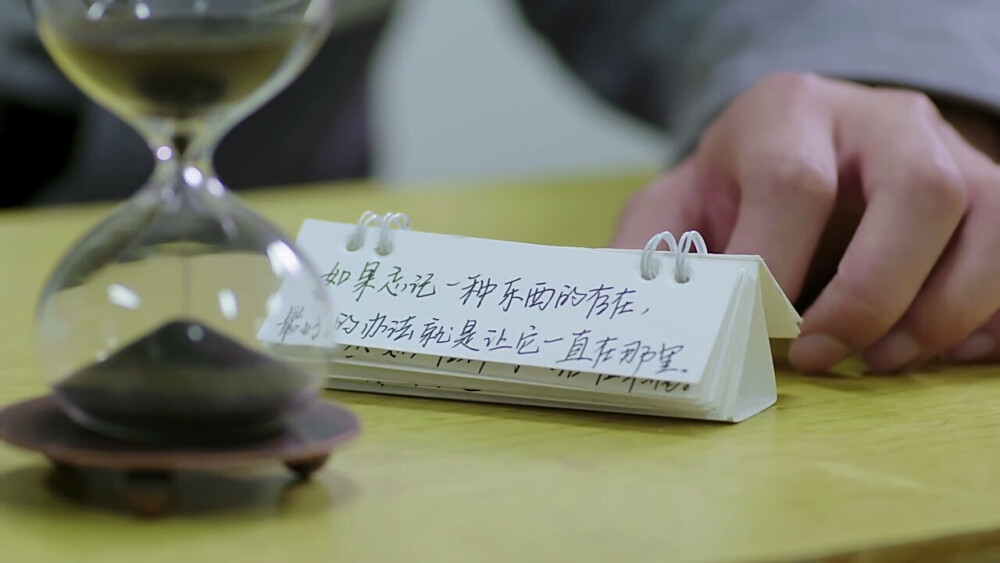 如果忘记一种东西的存在，
最好的办法就是让它一直在那里。